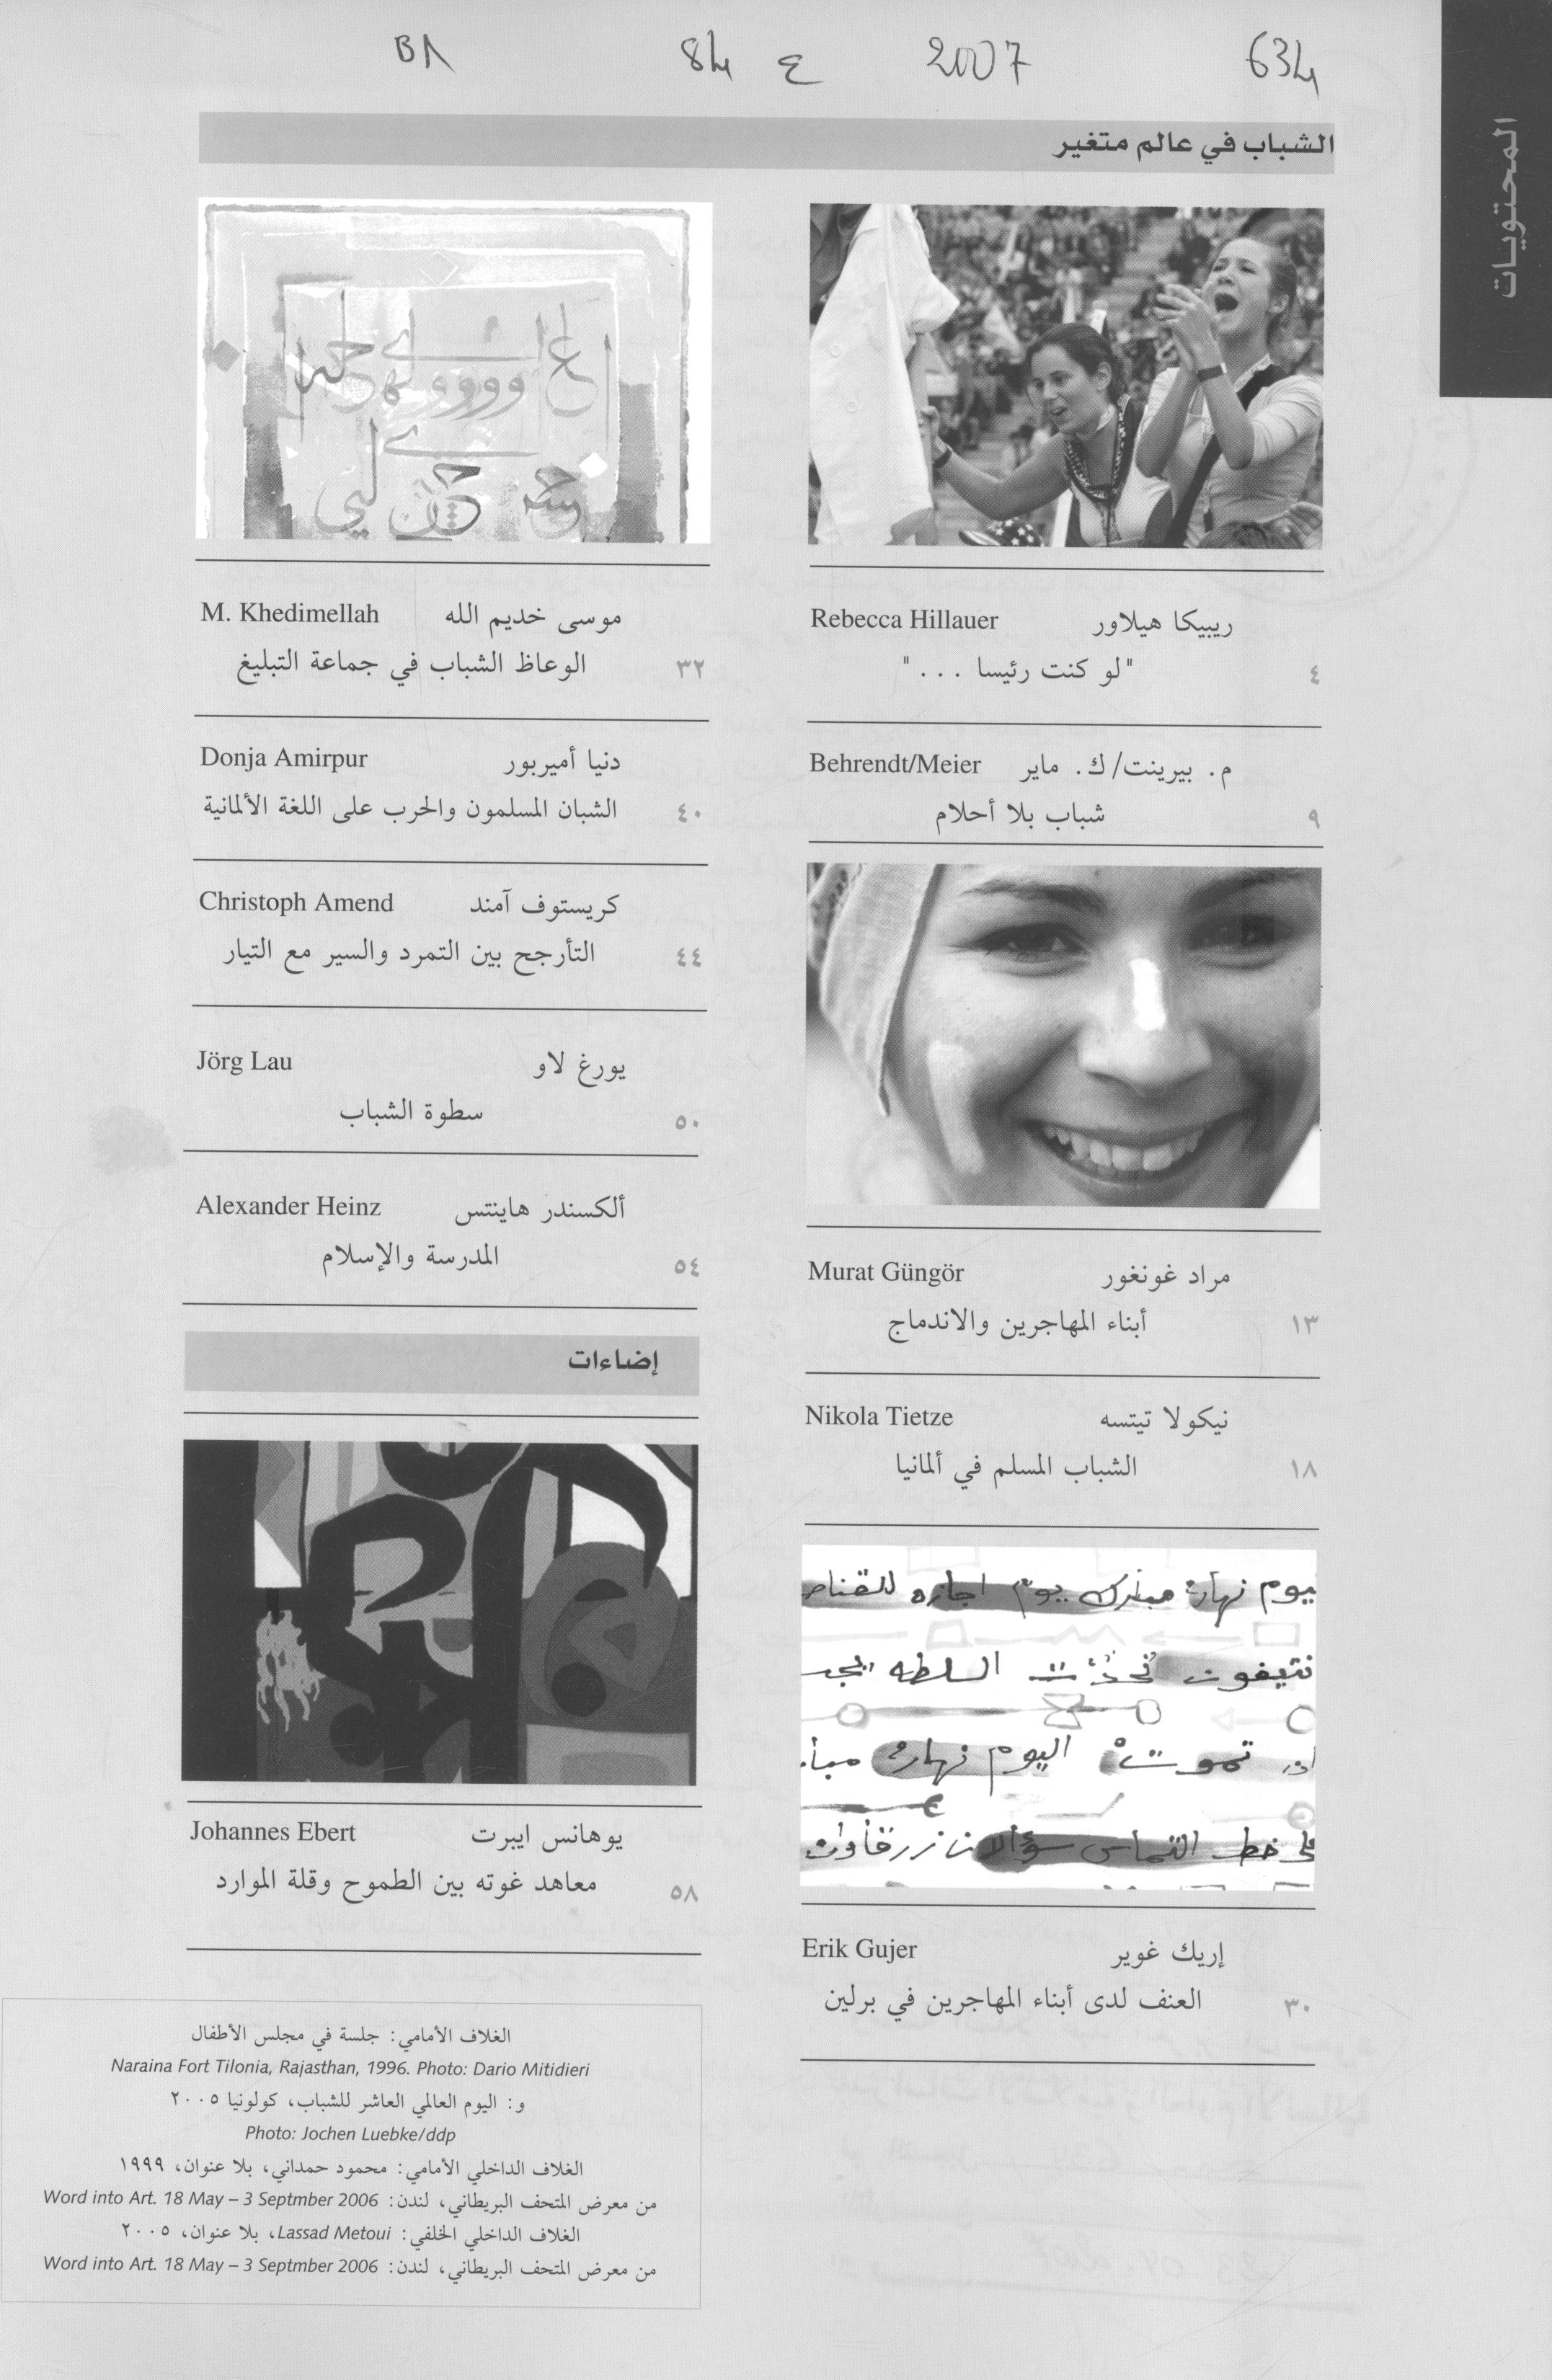 BA 84 ع 2007 634
المحتويات
الشباب في عالم متغير
Rebecca Hillauer ريبيكا هيلاور
"لو كنت رئيسا . . . " ٤
Behrendt/Meier م. بيرينت/ك. ماير
شباب بلا أحلام ٩
Murat Güngör مراد غونغور
أبناء المهاجرين والاندماج ١٣
Nikola Tietze نيكولا تيتسه
الشباب المسلم في ألمانيا ١٨
يوم نهاره مبارك يوم اجازه للقناص
السلطه
تموت اليوم نهاره
خط التماس
Erik Gujer إريك غوير
العنف لدى أبناء المهاجرين في برلين ٣٠
M. Khedimellah موسى خديم الله
الوعاظ الشباب في جماعة التبليغ ٣٢
Donja Amirpur دنيا أميربور
الشبان المسلمون والحرب على اللغة الألمانية ٤٠
Christoph Amend كريستوف آمند
التأرجح بين التمرد والسير مع التيار ٤٤
Jörg Lau يورغ لاو
سطوة الشباب ٥٠
Alexander Heinz ألكسندر هاينتس
المدرسة والإسلام ٥٤
إضاءات
Johannes Ebert يوهانس ايبرت
معاهد غوته بين الطموح وقلة الموارد ٥٨
الغلاف الأمامي: جلسة في مجلس الأطفال
Naraina Fort Tilonia, Rajasthan, 1996. Photo: Dario Mitidieri
و: اليوم العالمي العاشر للشباب، كولونيا ٢٠٠٥
Photo: Jochen Luebke/ddp
الغلاف الداخلي الأمامي: محمود حمداني، بلا عنوان، ١٩٩٩
من معرض المتحف البريطاني، لندن: Word into Art. 18 May – 3 Septmber 2006
الغلاف الداخلي الخلفي: Lassad Metoui، بلا عنوان، ٢٠٠٥
من معرض المتحف البريطاني، لندن: Word into Art. 18 May – 3 Septmber 2006